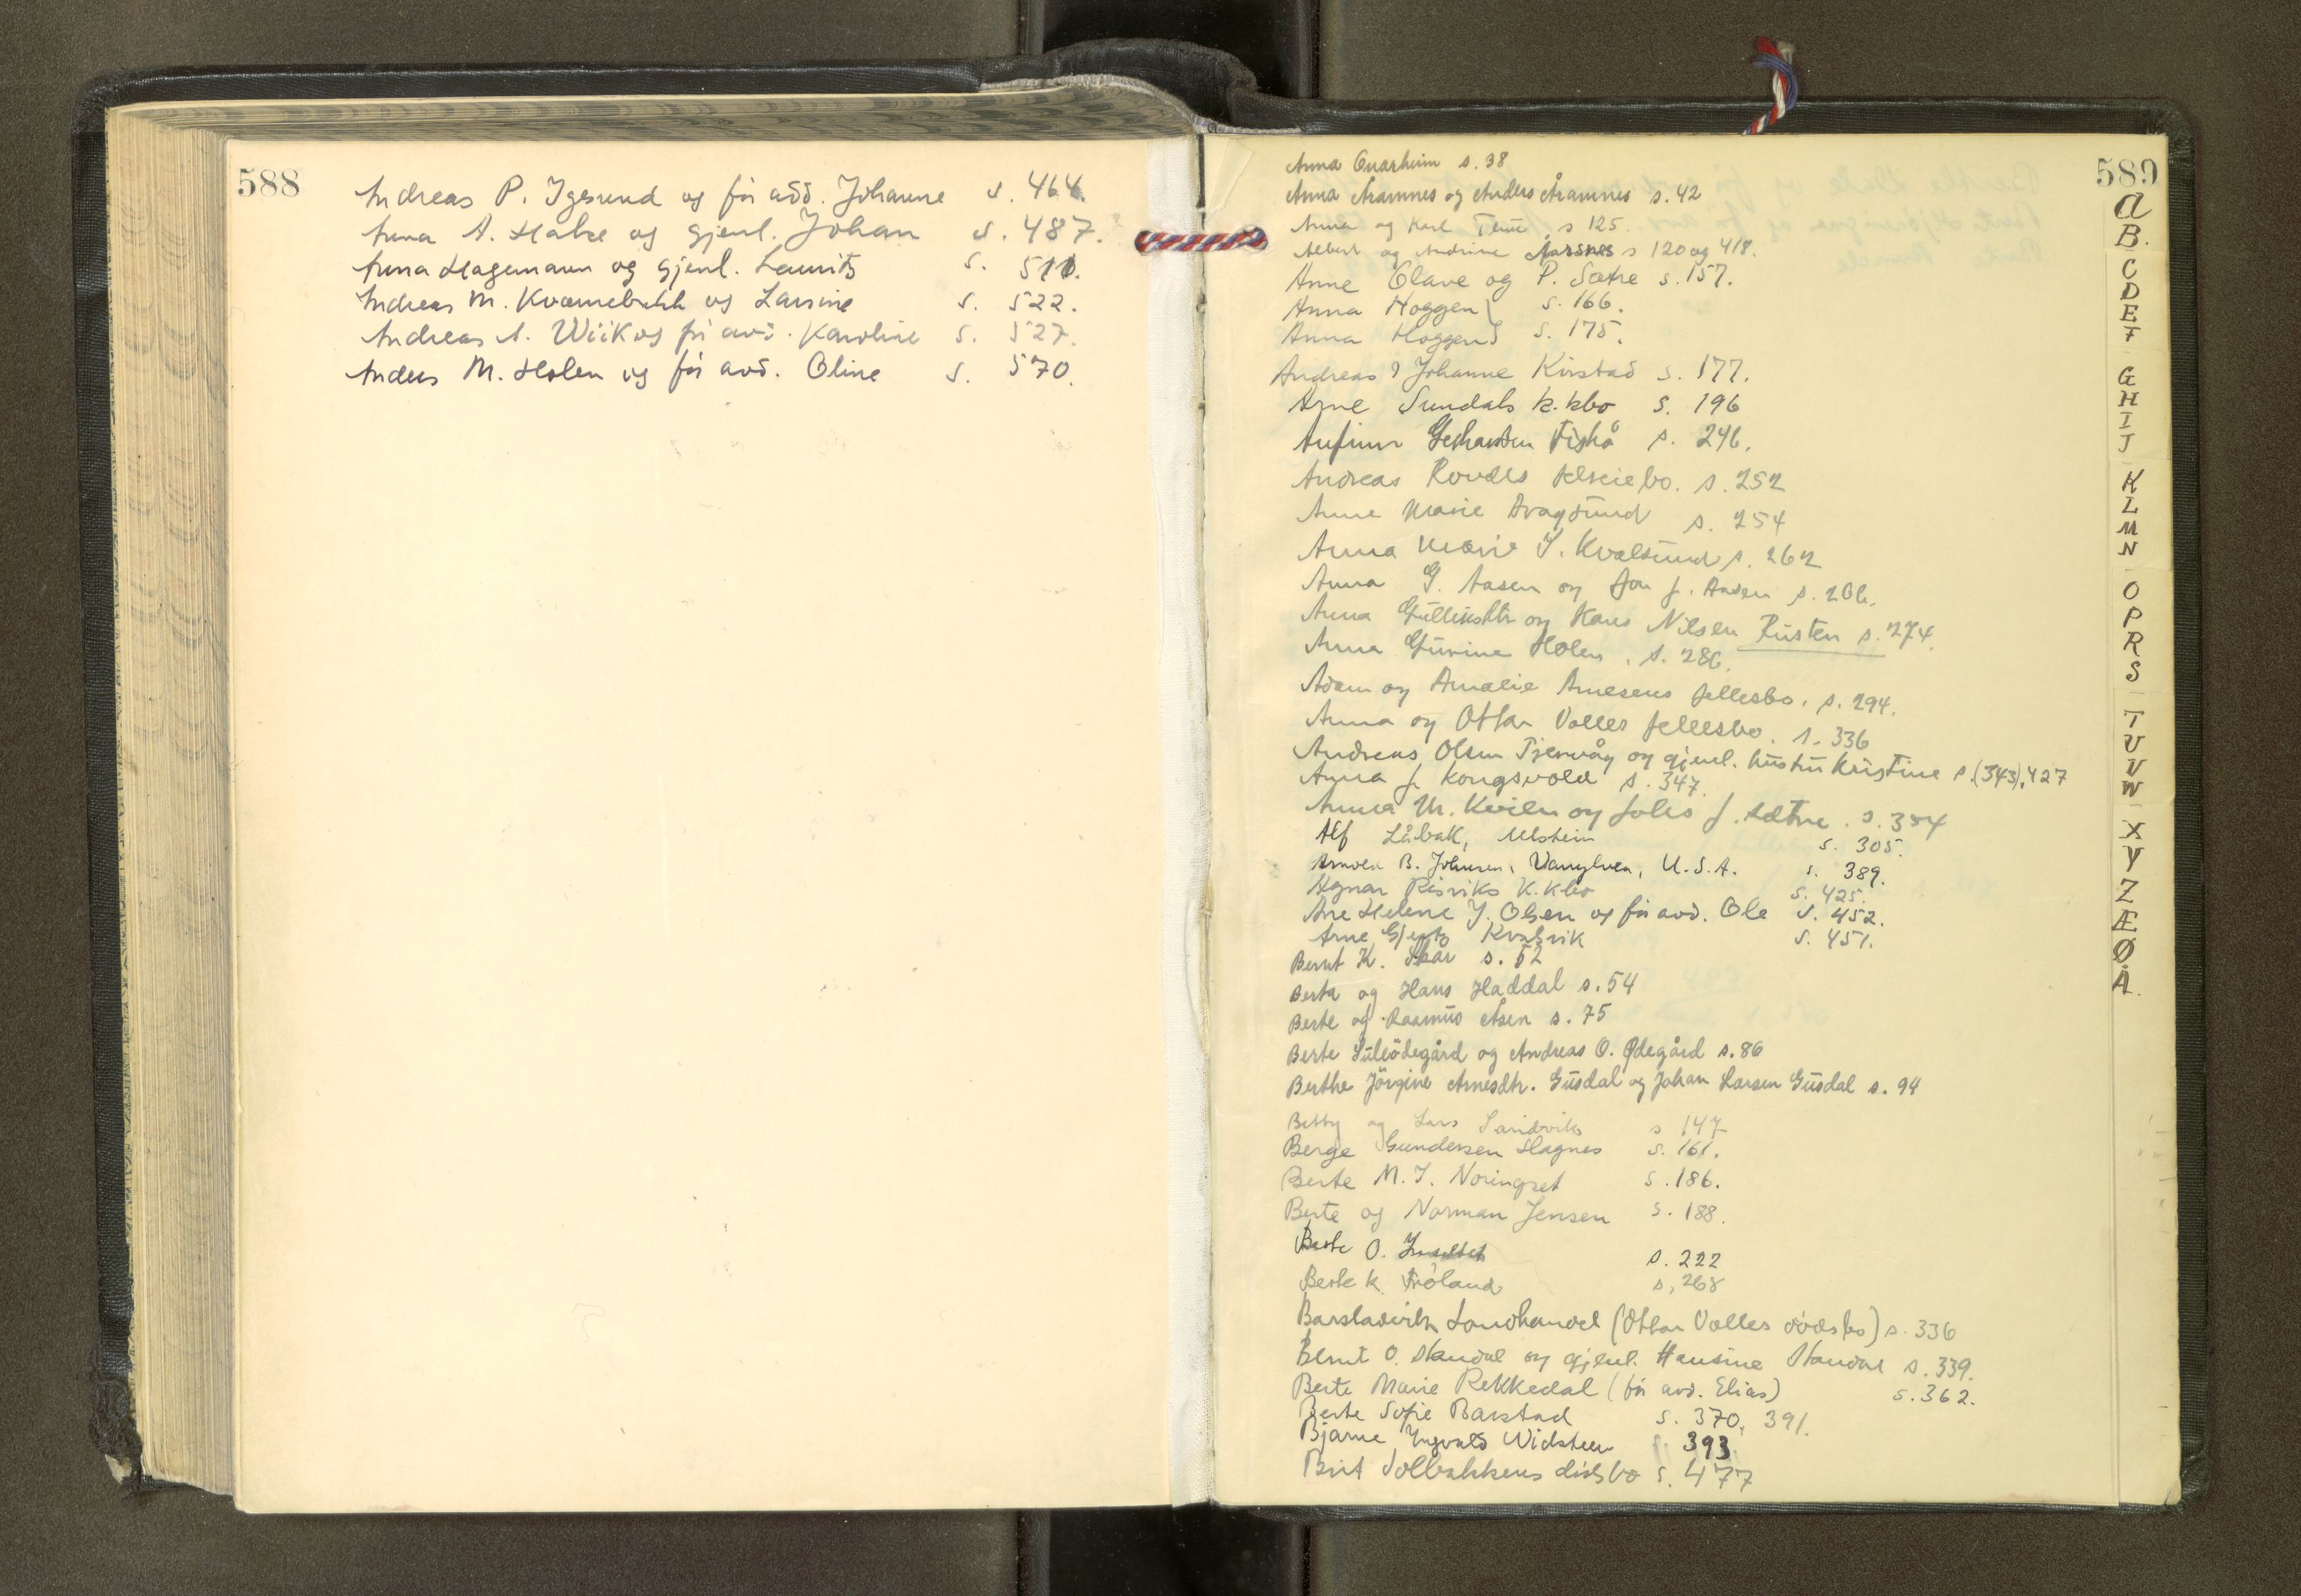 588
Andreas P. Igesund og før avd. Johanne s. 464.
Anna A. Hake og gjenl. Johan s. 487.
Anna Hagemann og gjenl. Laurits s. 511.
Andreas M. Kvamebakk og Larsine s. 522.
Andreas A. Wiik og før avd. Karoline s. 527.
Anders M. Holen og før avd. Oline s. 570.
589
Anna s. 38
Anna Aramnes og Anders Aramnes s. 42
Anna og Karl s 125.
Albert og Andrine Aarsnes s 120 og 418.
Anne Elave og P. Sætre s. 157.
Anna Hoggen s. 166.
Anna Hoggen s. 175.
Andreas & Johanne Kirstad s. 177.
Arne Sundals k.kbo s. 196
Anfinn Gerhardsen Fiskå s. 246.
Andreas Rovdes felseiebo. s. 252
Anne Marie Dragsund s. 254
Anna Marie J. Kvalsund s. 262
Anna G. Aasen og Jon J. Aasen s. 266.
Anna Gulliksdtr og Hans Nilsen Rusten s. 274.
Anna Gurine Holen. s. 286.
Adam og Amalie Arnesens fellesbo. s. 294.
Anna og Ottar Valles fellesbo. s. 336
Andreas Olsen Tjervåg og gjenl. hustru Kristine s. (343), 427
Anna J. Kongsvold s. 347.
Anna M. Kvien og Johs J. Sætre. s. 354
Alf Låbak, Ulstein s. 305.
Arnold B. Johnsen, Vanylven, U.S.A. s. 389.
Agnar Risviks K.kbo s. 425.
Ane Helene J. Olsen og før avd. Ole s. 452.
Arne Gjerts Kvalsvik s. 451.
Bernt K. Skar s. 52
Berta og Hans Haddal s. 54
Berte og Rasmus Åsen s. 75
Berte Suleødegård og Andreas O. Ødegård s. 86
Berthe Jörgine Arnesdtr. Gusdal og Johan Larsen Gusdal s. 94
Betty og Lars Sandvik s 147
Berge Gundersen Hagnes s. 161.
Berte M. J. Noringset s. 186.
Berte og Norman Jensen s. 188.
Berte O. s. 222
Berte K. Frøland s. 268
Barstadvik Landhandel (Ottar Valles dødsbo) s. 336
Bernt O. Standal og gjenl. Hansine Standal s. 339.
Berte Marie Rekkedal (før avd. Elias) s. 362.
Berte Sofie Barstad s. 370, 391.
Bjarne Yngvald Widsteen s. 393
Brit Solbakkens dødsbo s. 477
A
B.
C
D
E
F
G
H
I
J
K
L
M
N
O
P
R
S
T
U
V
W
X
Y
Z
Æ
Ø
Å.